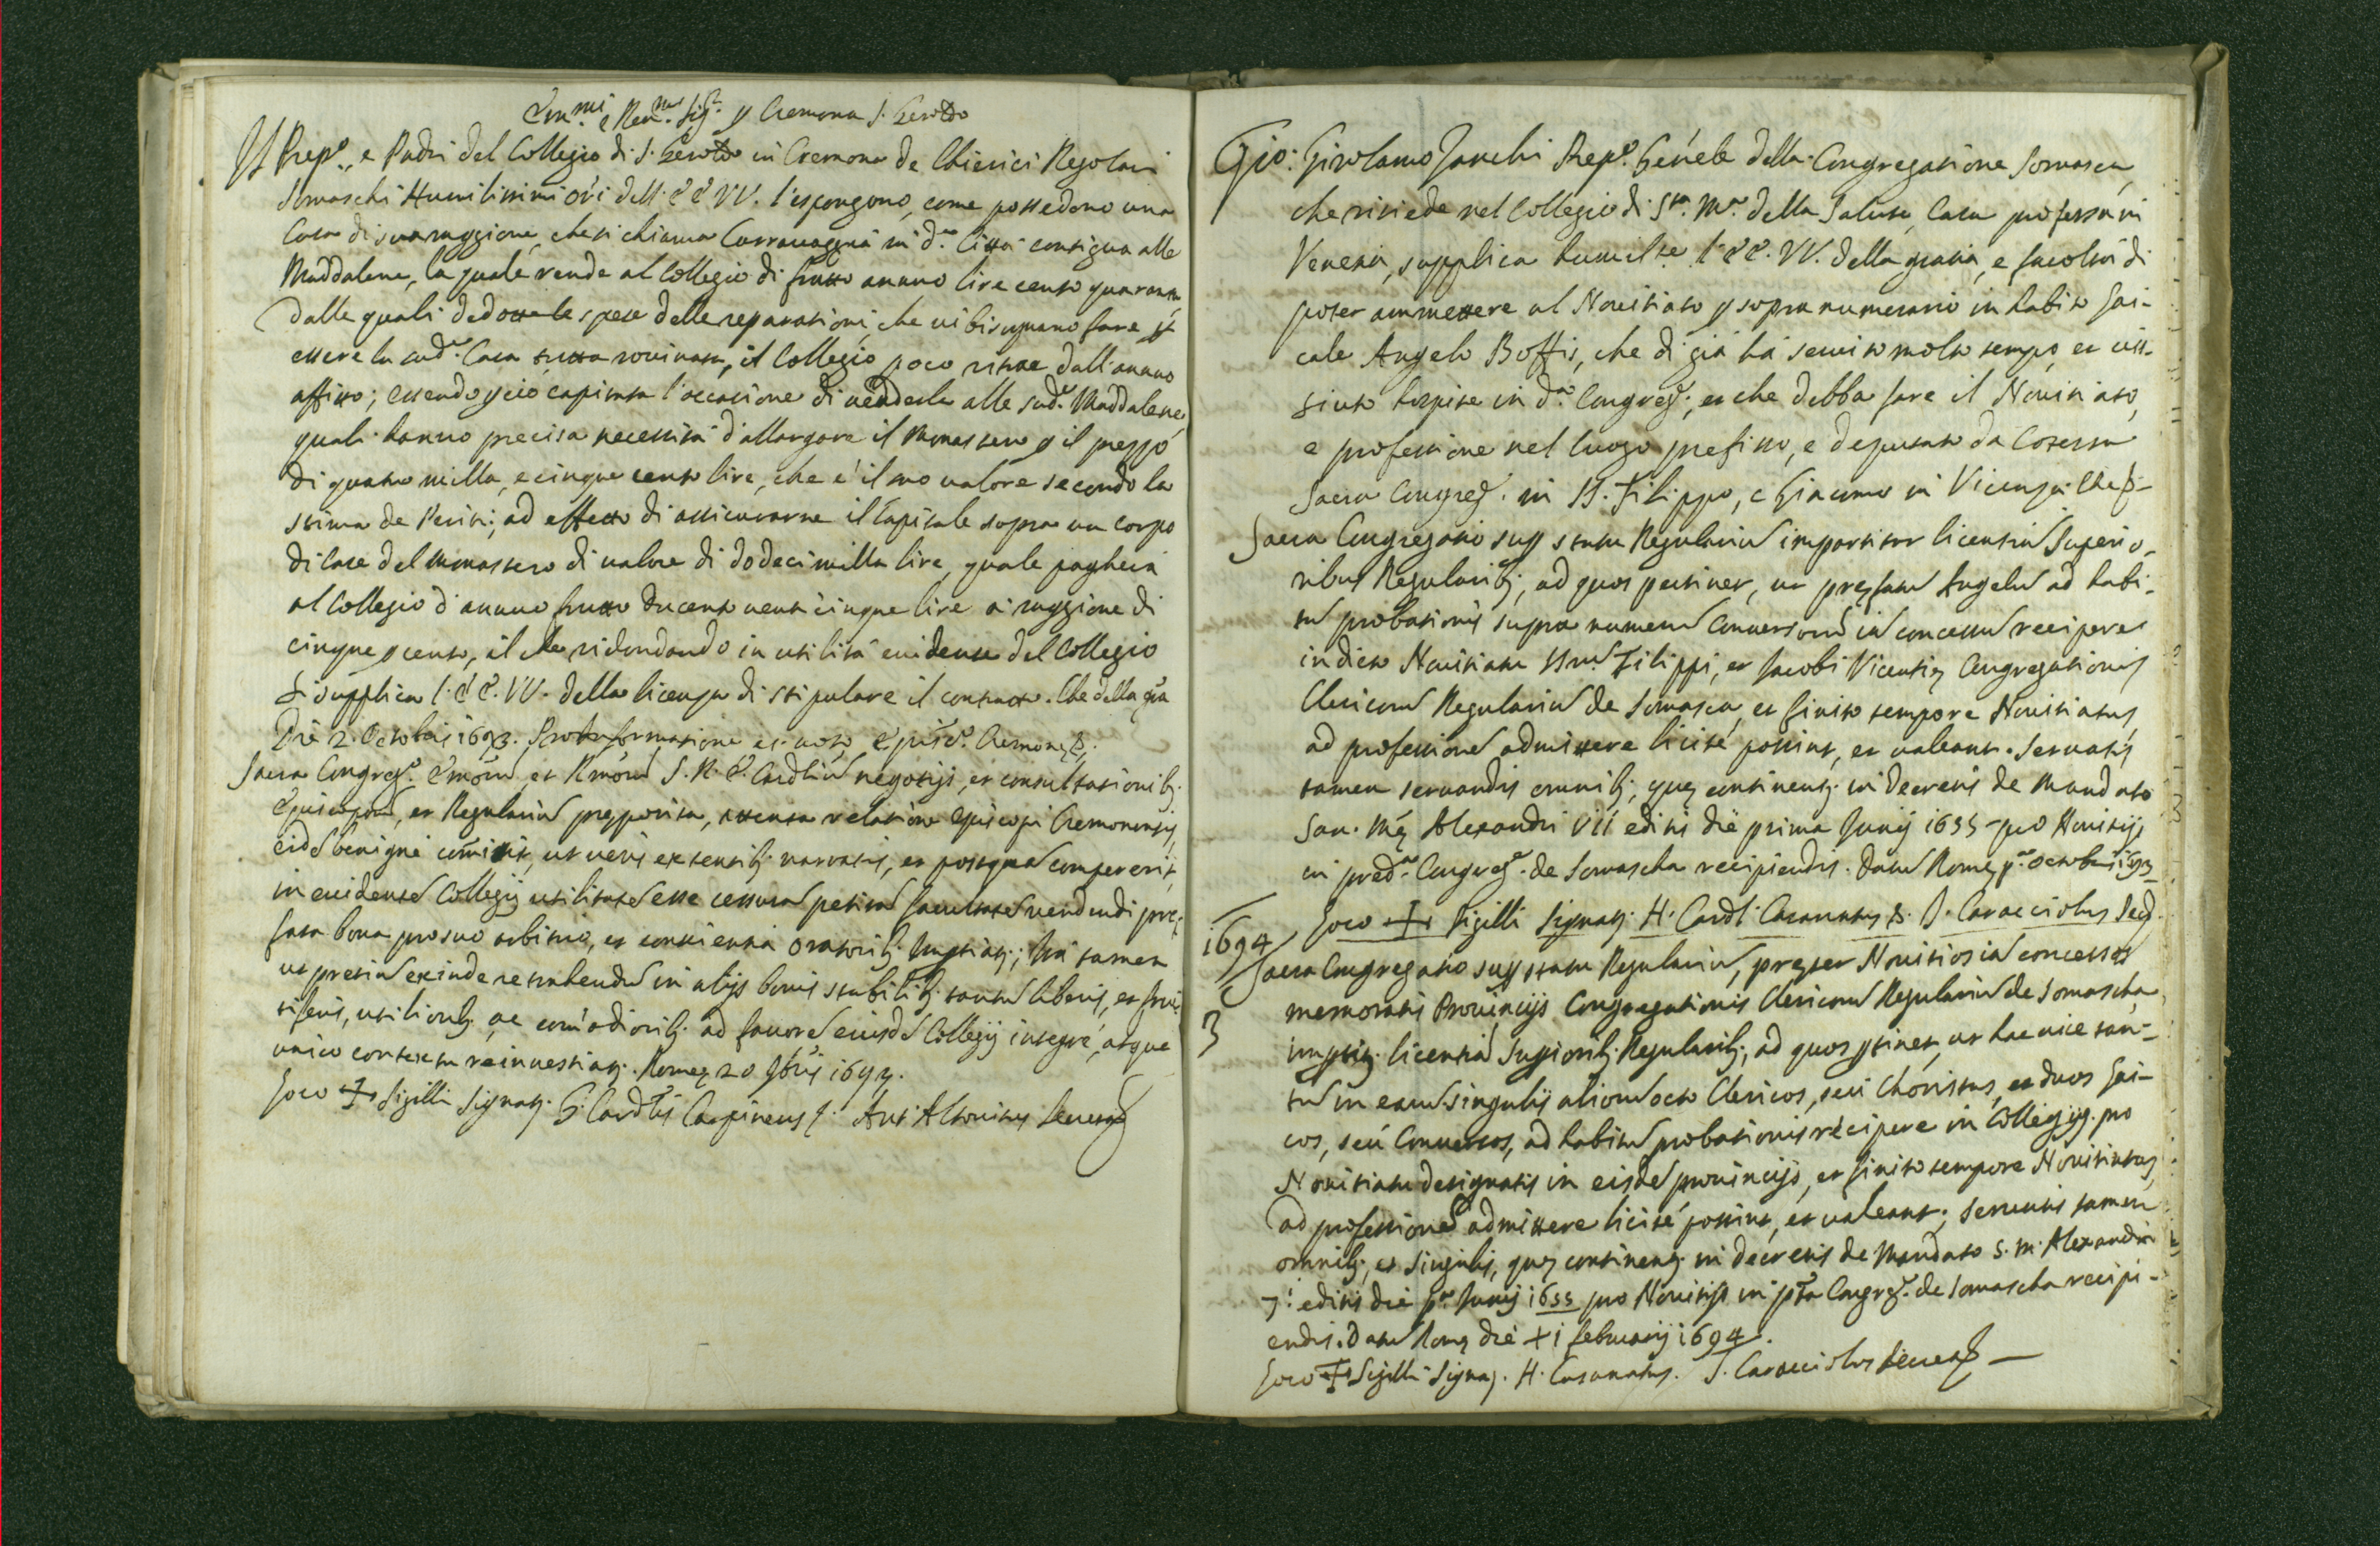 Em.mi e Rev.mi Sig.ri p Cremona S. Geroldo
Il Prep.o, e Padri del Collegio di S. Geroldo in Cremona de Chierici Regolari
Somaschi Humilissimi Ori dell' EE VV. l'espongono, come possedono una
Casa di sua raggione, che si chiama Carravaggia in d.a Città contigua alle
Maddalene, la quale rende al Collegio di frutto annuo lire cento quaranta,
dalle quali dedotte le spese delle reparationi, che vi bisognano fare p
essere la sud.a Casa tutta rovinata, il Collegio poco ritrae dall'annuo
affitto; essendo p ciò capitata l'occasione di venderla alle sud.e Maddalene,
quali hanno precisa necessità d'allargare il Monastero p il prezzo
di quatro milla, e cinque cento lire, che è il suo valore secondo la
stima de Periti; ad effetto di assicurarne il Capitale sopra un corpo
di Case del Monastero di valore di dodeci milla lire, quale pagherà
al Collegio d'annuo frutto ducento venti cinque lire a raggione di
cinque p cento, il che ridondando in utilità evidente del Collegio
si supplica l' EE. VV. della licenza di stipulare il contratto. Che della gra
Die 2. Octobris 1693. Pro informatione et voto Episc.o Cremonę
Sacra Congreg.o Emorum, et Rmorum S. R. E. Cardlium negotijs, et consultationib;
Episcoporum, et Regularium pręposita, attenta relatione Episcopi Cremonensis,
eidem benigne comisit, ut veris existentib; narratis, et postquam compererit,
in evidentem Collegij utilitatem esse cessuram petitam facultatem vendendi prę-
fata bona pro suo arbitrio, et conscientia Oratorib; impartiatj; ita tamen
ut pretium exinde retrahendum in alijs bonis stabilib; tantum liberis, et fruc-
tiferis, utiliorib; ac comodiorib; ad favorem eiusdem Collegij integre, atque
unico contextu reinvestiatj. Romę 20 9bris 1693.
Loco + Sigilli Signatj. G. Cardlis Carpineus Ant. Altovitus Secretar
Gio: Girolamo Zanchi Prep.o Genele della Congregatione Somasca,
che risiede nel Collegio di S.ta M.a della Salute, Casa professa in
Venetia, supplica humilte l' EE. VV. della gratia, e facoltà di
poter ammettere al Novitiato p sopra numerario in habito Lai-
cale Angelo Boffis, che di già hà servito molto tempo, et vis-
siuto hospite in d.a Congreg.e, et che debba fare il Novitiato,
e professione nel luogo prefisso, e deputato da Cotesta
Sacra Congreg. in SS. Filippo, e Giacomo in Vicenza. Che &
Sacra Congregatio sup statu Regularium impartitur licentiam Superio-
ribus Regularib;, ad quos pertinet, ut pręfatum Angelum ad habi-
tum probationis supra numerum Conversorum iam concessum recipere
in dicto Novitiatu SSrum Filippi, et Jacobi Vicentię Congregationis
Clericorum Regularium de Somasca, et finito tempore Novitiatus,
ad professionem admittere licite possint, et valeant. Servatis
tamen servandis omnib;, quę continentj in Decretis de Mandato
San. Mę Alexandri VII editis die prima Junij 1655 pro Novitijs
in pred.a Congreg.e de Somascha recipiendis. Datum Romę p.a Octobris 1693
Loco + Sigilli Signatj. H. Cardl. Casanatus B. Caracciolus Secr.
1694 Sacra Congregatio sup statu Regularium, pręter Novitios iam concessos
memoratis Provincijs Congregationis Clericorum Regularium de Somascha,
3 impartitj licentiam Superiorib; Regularib;, ad quos ptinet, ut hac vice tan-
tum in earum singulis aliorum octo Clericos, seu Choristas, et duos Lai-
cos, seu Conversos, ad habitum probationis recipere in Collegijs pro
Novitiatu designatis in eisdem provincijs, et finito tempore Novitiatus,
ad professionem admittere licite possint, et valeant; servatis tamen
omnib;, et singulis, quę continentj in decretis de Mandato S. M. Alexandri
7.i editis die p.a Junij 1655 pro Novitijs in pta Congreg.e de Somascha recipi-
endis. Datum Romę die XI februarij 1694.
Loco + Sigilli Signatj. H. Casanatus. Caracciolus Secret